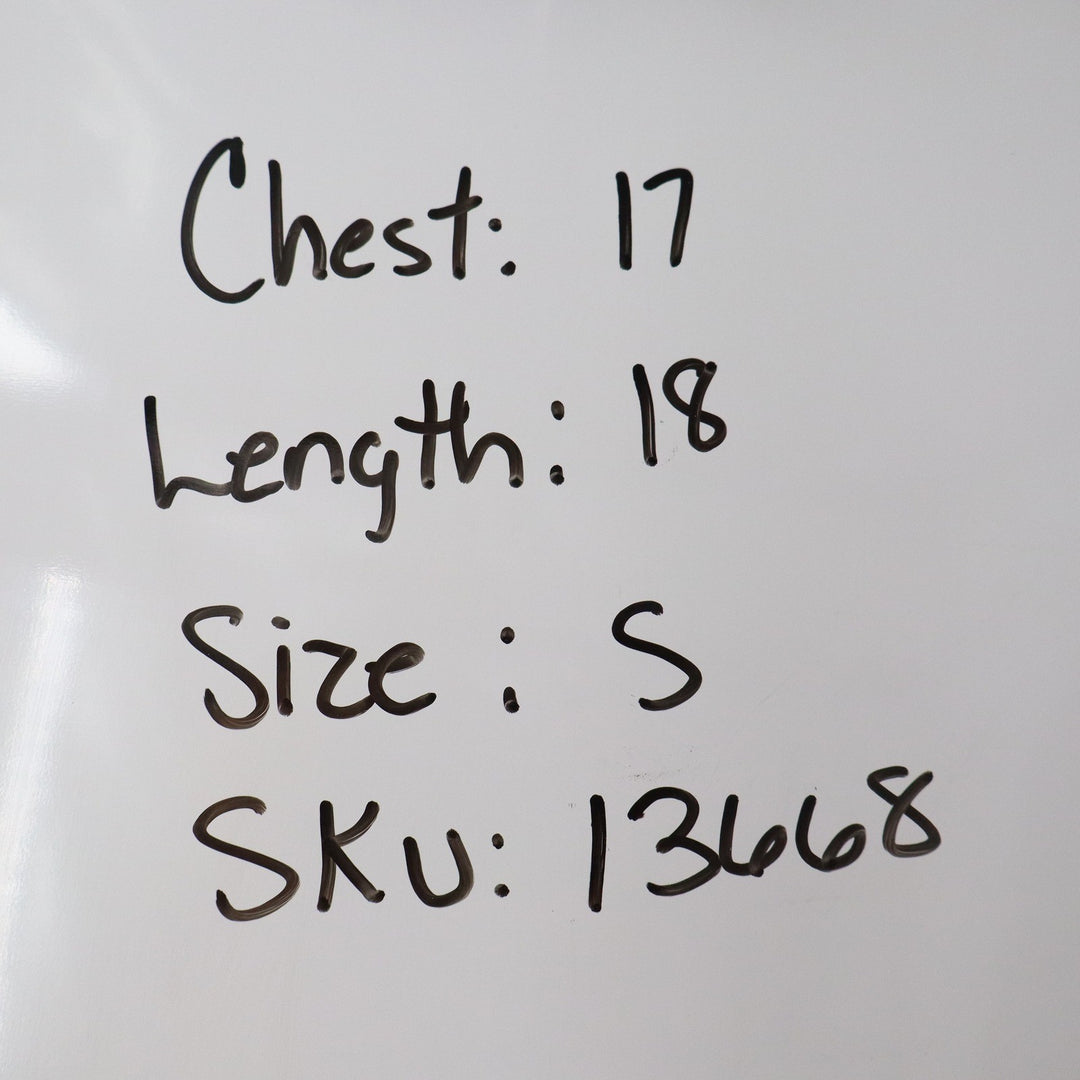 Chest: 17
Length: 18
Size: S
SKU: 13668